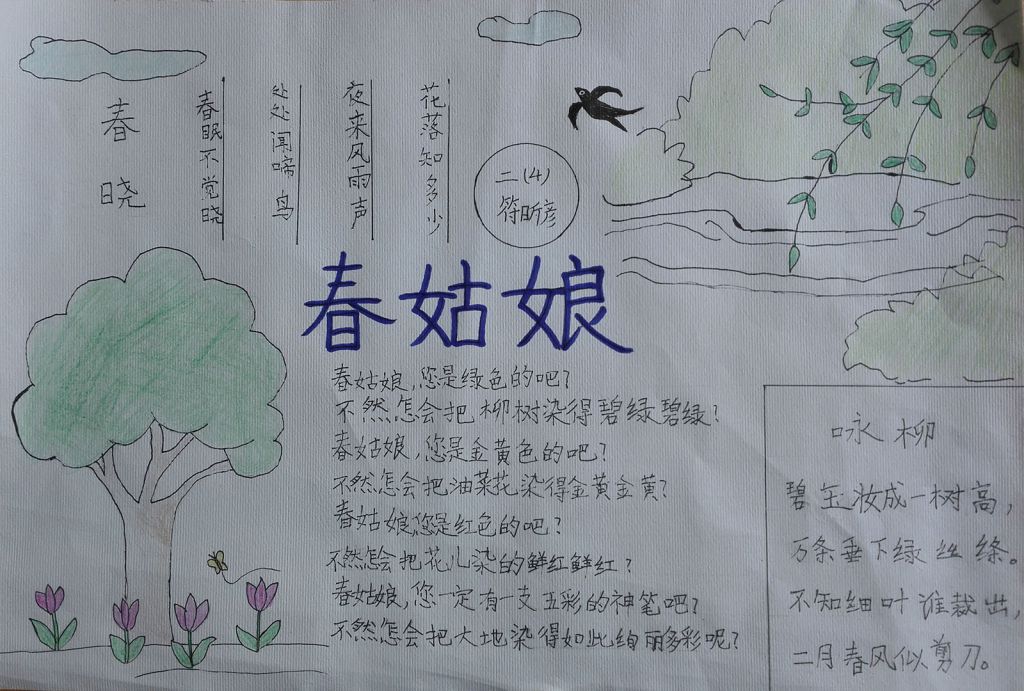 春晓
春眠不觉晓
处处闻啼鸟
夜来风雨声
花落知多少
二(4)
符昕彦
春姑娘
春姑娘,您是绿色的吧?
不然怎会把柳树染得碧绿碧绿?
春姑娘,您是金黄色的吧?
不然怎会把油菜花染得金黄金黄?
春姑娘您是红色的吧?
不然怎会把花儿染的鲜红鲜红?
春姑娘,您一定有一支五彩的神笔吧?
不然怎会把大地染得如此绚丽多彩呢?
咏柳
碧玉妆成一树高,
万条垂下绿丝绦。
不知细叶谁裁出,
二月春风似剪刀。